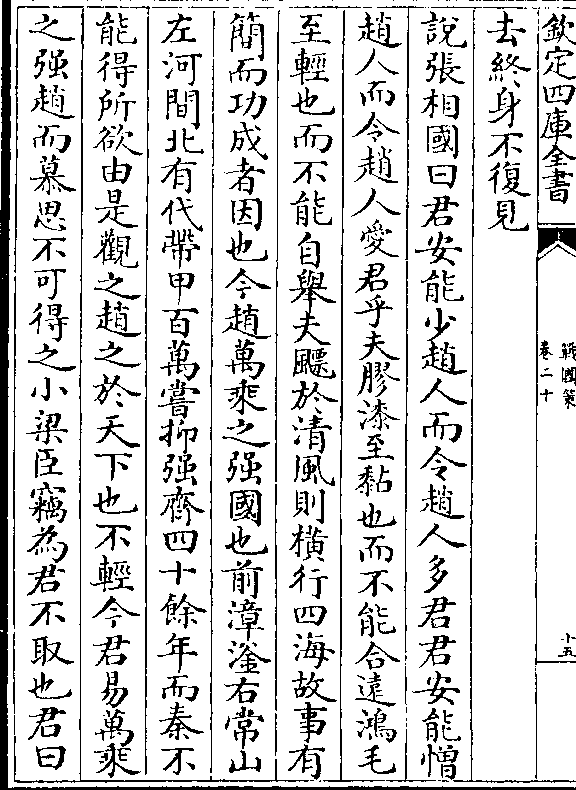 欽定四庫全書
戰國策
卷二十
十五
去終身不復見
說張相國曰君安能少趙人而令趙人多君君安能憎
趙人而令趙人愛君乎夫膠漆至黏也而不能合遠鴻毛
至輕也而不能自舉夫飂於清風則橫行四海故事有
簡而功成者因也今趙萬乘之强國也前漳滏右常山
左河間北有代帶甲百萬嘗抑强齊四十餘年而秦不
能得所欲由是觀之趙之於天下也不輕今君易萬乘
之强趙而慕思不可得之小梁臣竊為君不取也君曰